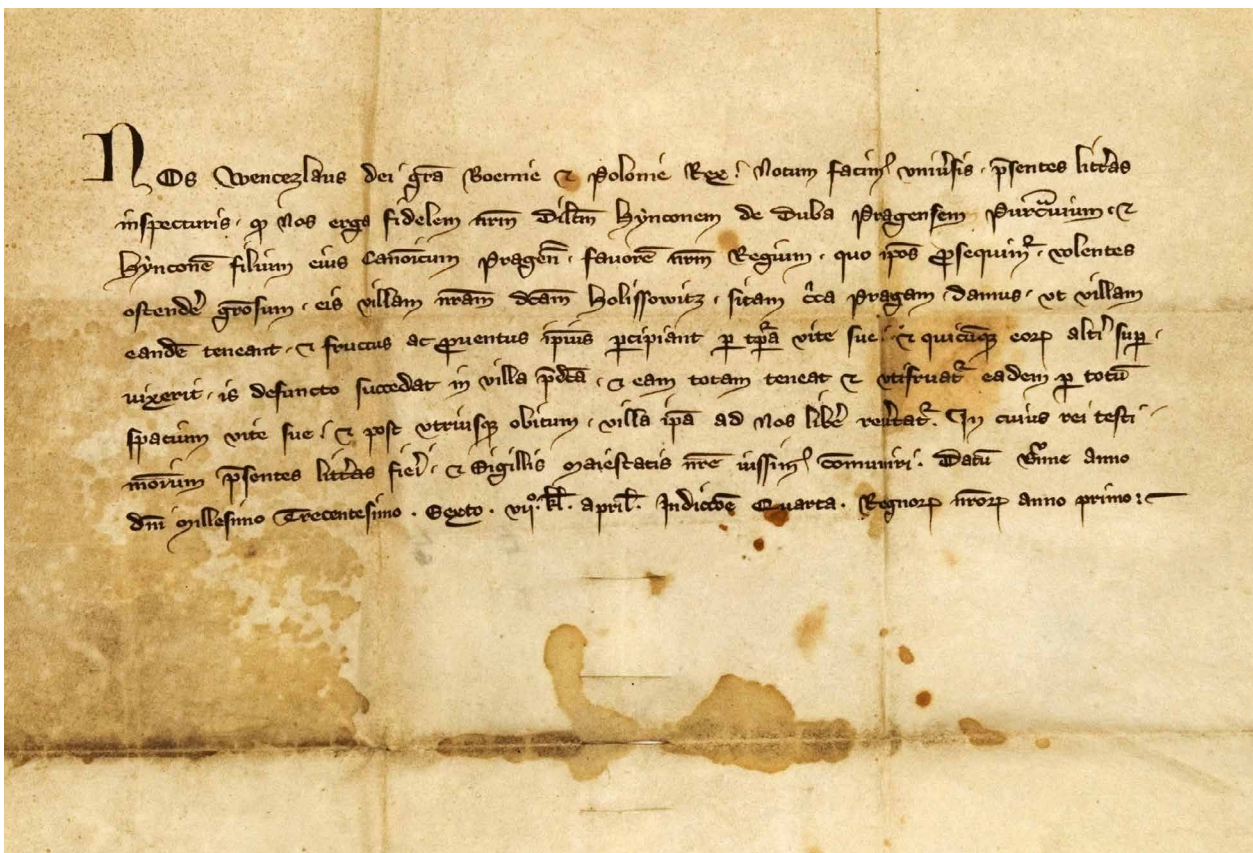 Nos Wenczlaus dei gr̄a Boemie ⁊ Polonie Rex. Notum facimꝰ vniu̓sis. p̄sentes litt̓as
inspecturis. ꝙ Nos erga fidelem nr̄m dil̄cm Hẏnconem de Duba Pragensem Purc̄uium. ⁊
Hẏnconē filium eius Can̄oicum Pragen̄. fauorē nr̄m Regium. quo ip̄os ꝓsequimᷣ. volentes
ostende̓ gr̄osum. eis villam nr̄am dc̄am Holissowitz. sitam c̓ca Pragam. damus. vt villam
eandē teneant. ⁊ fructus ac ꝓuentus ip̄ius ꝑcipiant ꝑ tp̄ra vite sue. ⁊ quicūqꝫ eoꝝ alt̓i suꝑ.
uixerit. is defuncto succedat in villa p̄dc̄a. ⁊ eam totam teneat ⁊ vtifruatᷣ eadem ꝑ totū
spacium vite sue. ⁊ post vtriusqꝫ obitum. villa ip̄a ad Nos libe̓ reu̓tatᷣ. In cuius rei testi
mōium p̄sentes litt̓as fie̓i. ⁊ Sigillis maiestatis nr̄e iussimꝰ Cōmuniri. Datū Br̄unne anno
dn̄i Millesimo Trecentesimo. Sexto. vijº. kl̄. april̄. Indicc̄oe Quarta. Regnoꝝ nr̄oꝝ anno primo.